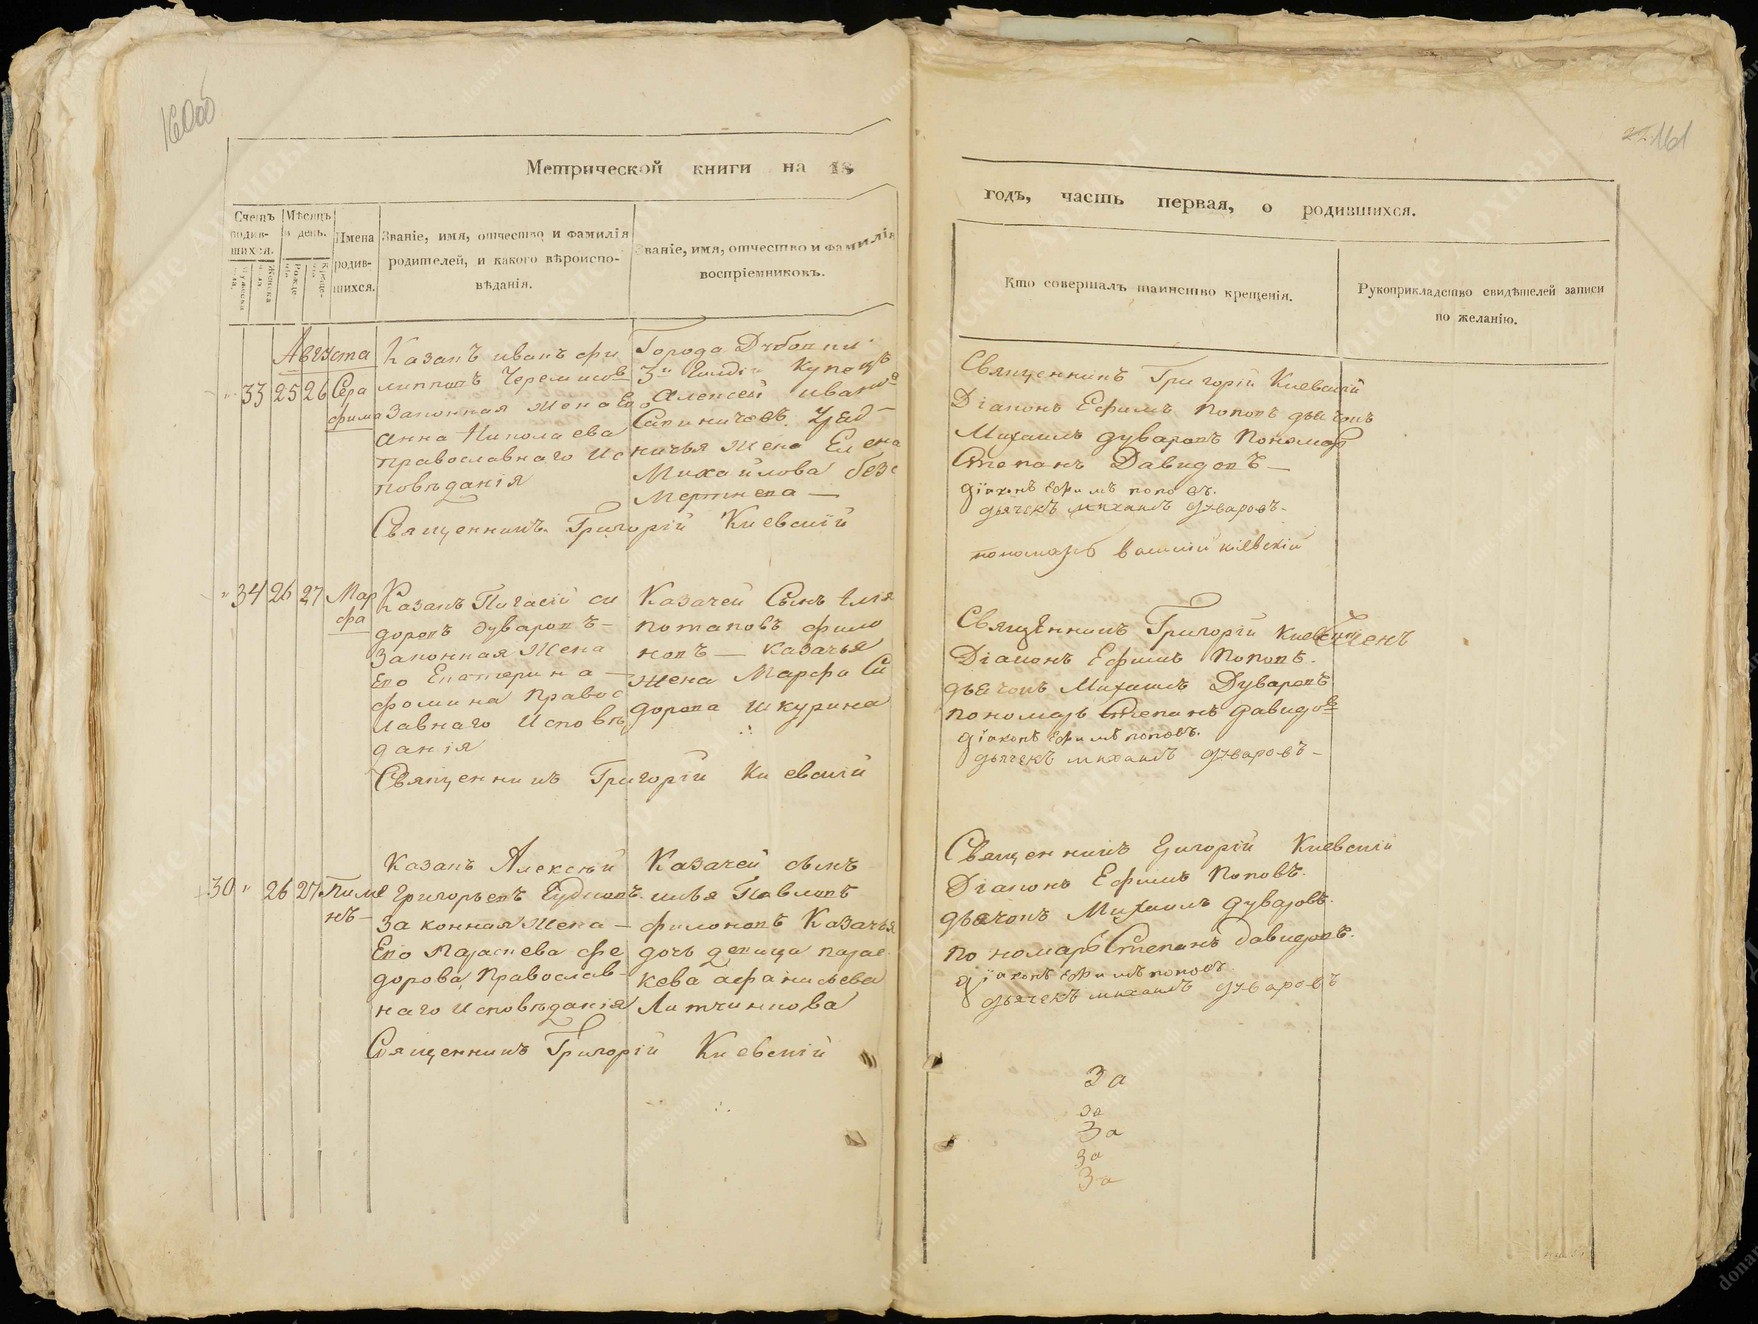 160об
161
Метрической книги на 18
годъ, часть первая, о родившихся.
Счетъ родив-шихся.
Мѣсяцъ и день.
Имена родив-шихся.
Званіе, имя, отчество и фамилія
родителей, и какого вѣроиспо-
вѣданія.
Званіе, имя, отчество и фамилія
воспріемниковъ.
Кто совершалъ таинство крещенія.
Рукоприкладство свидѣтелей записи
по желанію.
Августа
33 25 26 Сера
фима
Казакъ иванъ фи
липповъ Черемисов
Законная Жена Его
Анна Николаева
православнаго Ис
повѣданія
Города Дубовки
3й Гилдіи Купецъ
Алексей иванов
Жена Елена
Михайлова
Священникъ Григорій Киевскій
Священникъ Григорій Киевскій
Діаконъ Ефимъ Поповъ дьячокъ
Михаилъ дуваровъ Пономар
Степанъ Давидовъ
діаконъ ефимъ поповъ.
дьячекъ михаилъ дуваровъ.
пономарь василій кіевскій
34 26 27 Мар
фа
Казакъ си
доровъ дуваровъ
Законная Жена
Его Екатерина
фомина Правос
лавнаго Исповѣ
данія
Казачей Сынъ Илья
потаповъ фило
новъ — Казачья
жена Марфа Си
дорова шкурина
Священникъ Григорій Киевскій
Священникъ Григорій Киевскій
Діаконъ Ефимъ Поповъ.
дьячокъ Михаилъ Дуваровъ
Пономарь Степанъ Давидов
діаконъ ефимъ поповъ.
дьячекъ михаилъ дуваровъ
30 26 27 Пиме
нъ
Казакъ Алексѣй
Григорьевъ
Законная Жена
Его Параскева фе
дорова, Православ
наго Исповѣданія
Казачей сынъ
илья Павловъ
филоновъ Казачья
дочь девица парас
кева афанасьева
Священникъ Григорій Киевскій
Священникъ Григорій Киевскій
Діаконъ Ефимъ Поповъ.
дьячокъ Михаилъ дуваровъ.
пономарь Степанъ Давидовъ.
діаконъ ефимъ поповъ
дьячекъ михаилъ дуваровъ
За
за
За
За
За